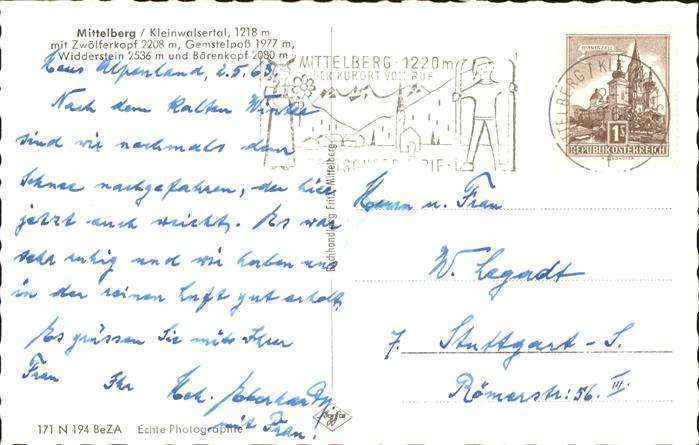 Mittelberg / Kleinwalsertal, 1218 m
mit Zwölferkopf 2208 m, Gemstelpaß 1977 m,
Widderstein 2536 m und Bärenkopf 2080 m
Haus Alpenland, 2.5.63.
Nach dem kalten Winter
sind wir nochmals dem
Schnee nachgefahren, der hier
jetzt auch weicht. Es war
sehr ruhig und wir haben uns
in der reinen Luft gut erholt.
Es grüssen Sie und Ihre
Frau Ihr Hch. Eberhardt
mit Frau!
171 N 194 BeZA Echte Photographie
Buchhandlung Fritz, Mittelberg
MITTELBERG · 1220 m
DER KURORT VON RUF
MARIAZELL
1S
REPUBLIK ÖSTERREICH
Herrn u. Frau
W. Legadt
7. Stuttgart-S.
Römerstr. 56 III.